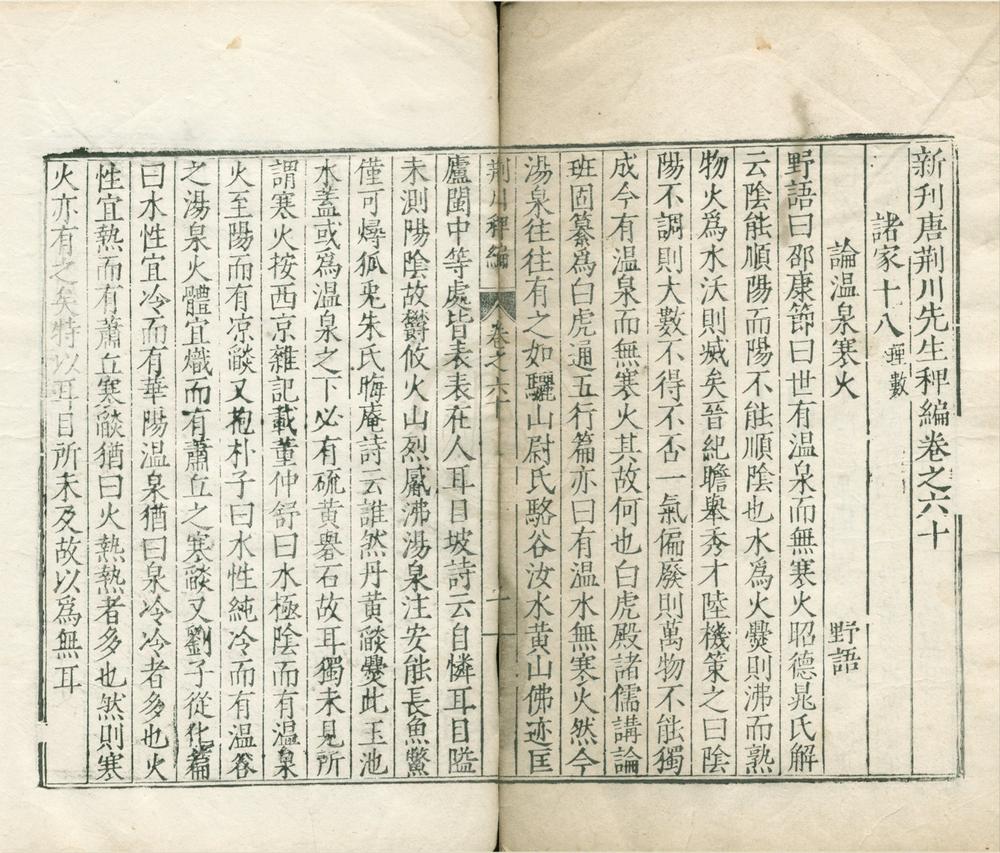 新刋唐荆川先生稗編卷之六十
諸家十八 理數
論温泉寒火 野語
野語曰邵康節曰世有温泉而無寒火昭德晁氏解
云陰能順陽而陽不能順陰也水為火爨則沸而熟
物火爲水沃則滅矣晉紀瞻舉秀才陸機策之曰陰
陽不調則大數不得不否一氣偏廢則萬物不能獨
成今有温泉而無寒火其故何也白虎殿諸儒講論
班固纂爲白虎通五行篇亦曰有温水無寒火然今
湯泉往往有之如驪山尉氏駱谷汝水黄山佛迹匡
荆川稗編 卷之六十 一
廬閩中等處皆表表在人耳目坡詩云自憐耳目隘
未測陽陰故欝攸火山烈觱沸湯泉注安能長魚鱉
僅可燖狐兎朱氏晦庵詩云誰然丹黄燄爨此玉池
水蓋或爲温泉之下必有硫黄礜石故耳獨未見所
謂寒火按西京雜記載董仲舒曰水極陰而有温泉
火至陽而有凉燄又抱朴子曰水性純冷而有温谷
之湯泉火體宜熾而有蕭丘之寒燄又劉子從化篇
曰水性宜冷而有華陽温泉猶曰泉冷冷者多也火
性宜熱而有蕭丘寒燄猶曰火熱熱者多也然則寒
火亦有之矣特以耳目所未及故以爲無耳